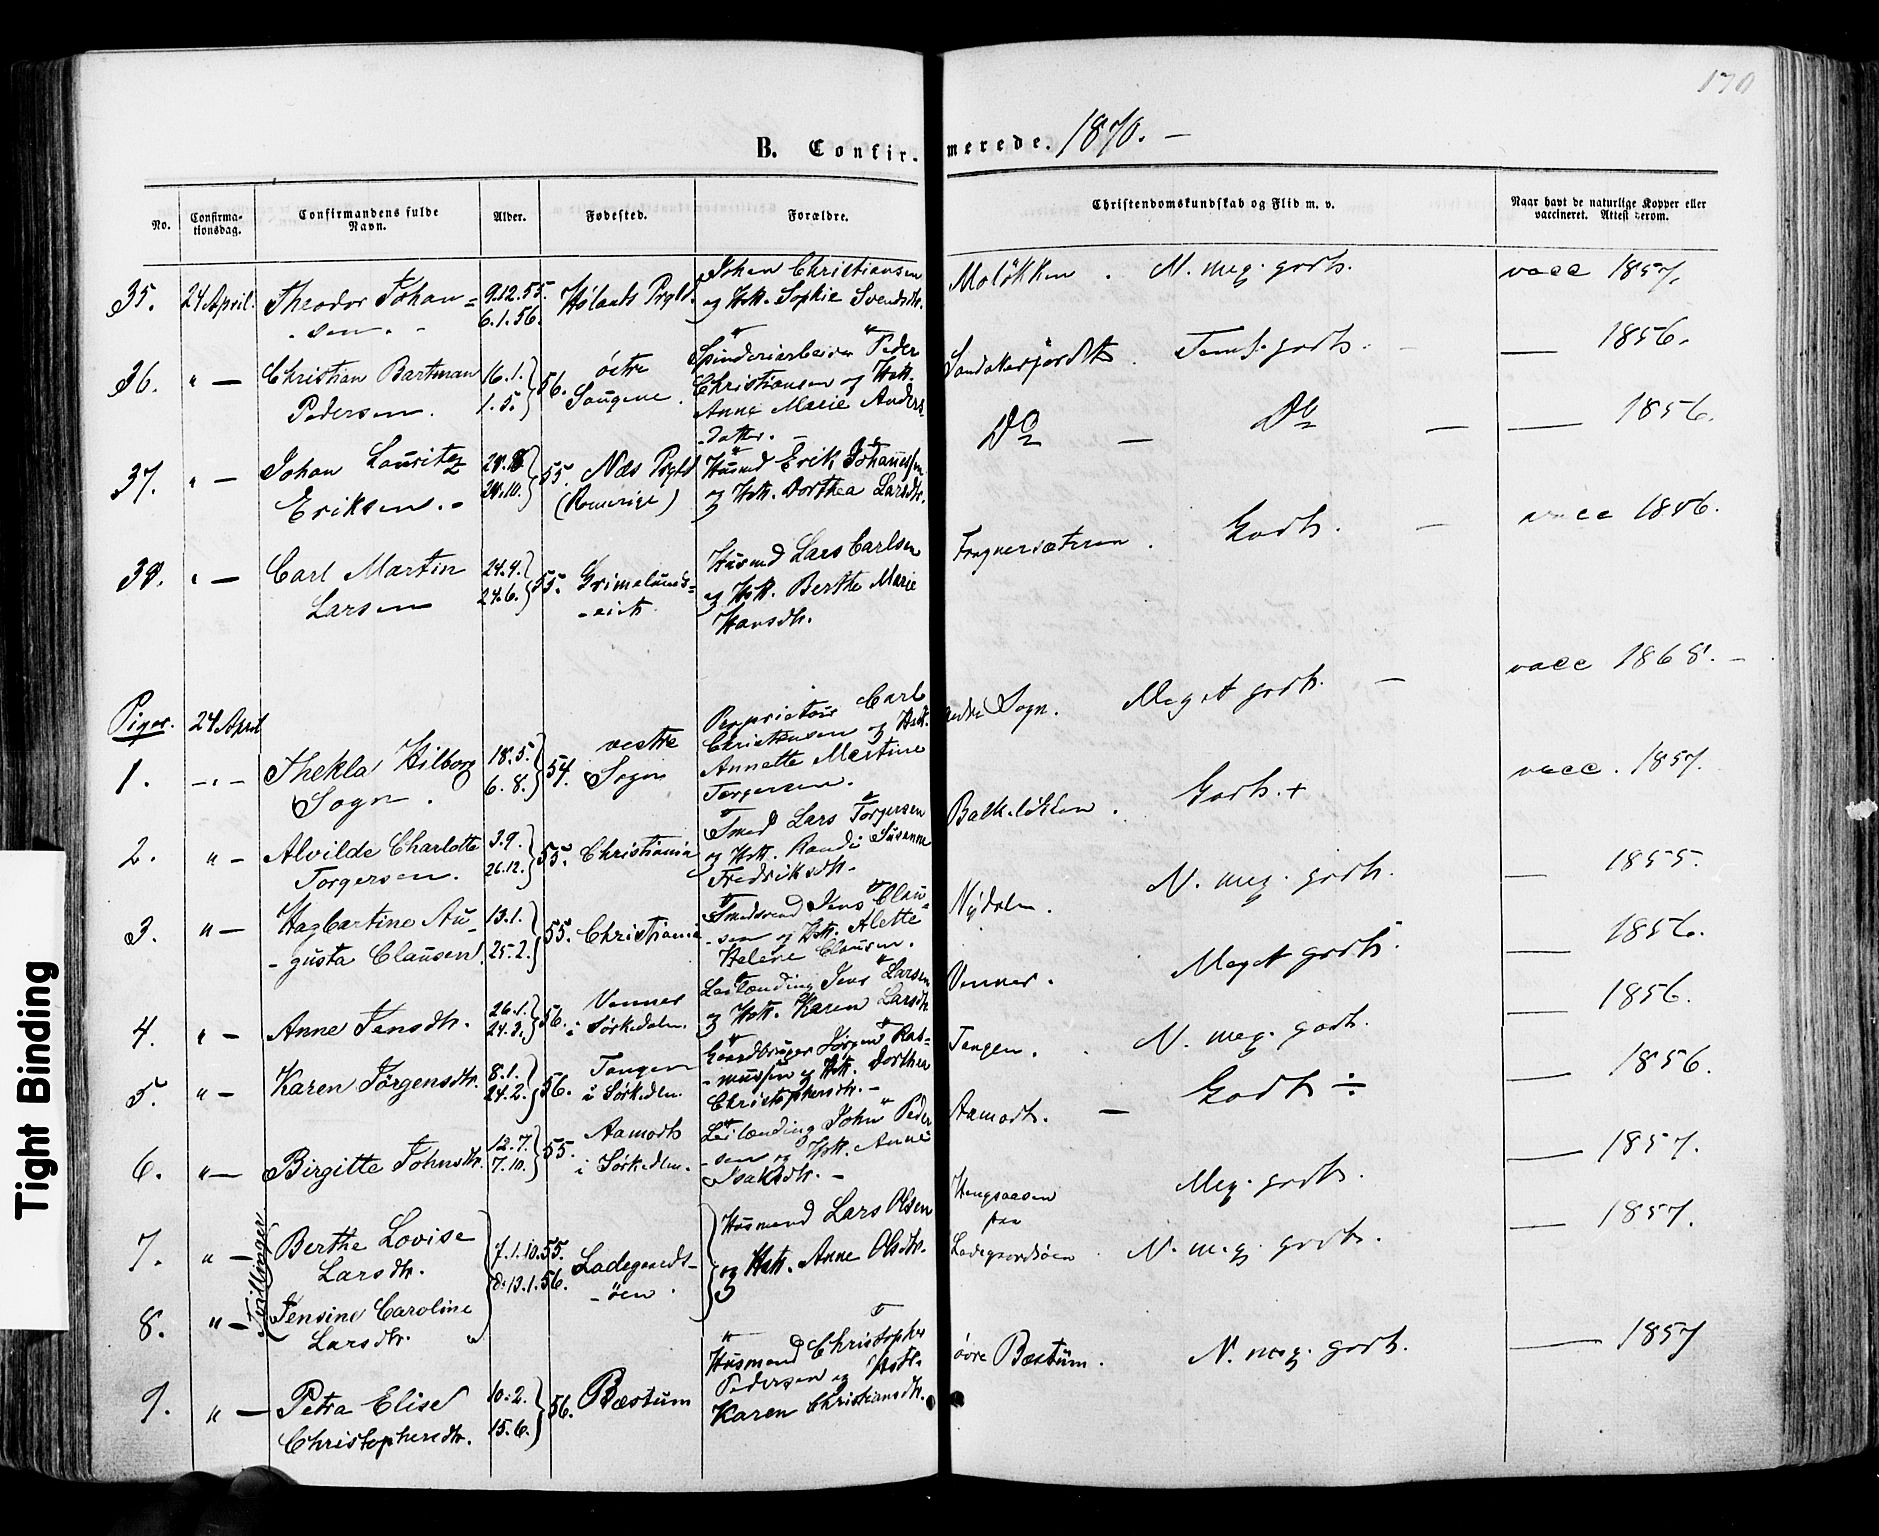 170
B. Confir-merede. 1870. —
No.
Confirma-
tionsdag.
Confirmandens fulde
Navn.
Alder.
Fødested.
Forældre.
Christendomskundskab og Flid m. v.
Naar havt de naturlige Kopper eller
vaccineret. Attest herom.
35. 24 April. Theodor Johan= 9.12.55. Hølands Prgld. Johan Christiansen
- sen. - 6.1.56. og Hstr. Sophie Svendsdtr.
Moløkken . N. meg. godt. vacc 1857.
36. " — Christian Bartman 16.1. 56. østre Spinderiarbeider Peder
Pedersen. 1.5. Sougene. Christiansen og Hstr.
Anne Marie Anders
- datter. -
Sandakerjordet. Teml. godt. — 1856.
37. " — Johan Lauritz 55. Næs Prgld Husmd Erik Johannessen
Eriksen. - 24.10. (Romerige) og Hstr. Dorthea Larsdtr.
Do — Do — — 1856.
38. " — Carl Martin 24.4. 55. Grimelunds= Husmd Lars Carlsen
Larsen 24.6. - eiet. og Hstr. Berthe Marie
Hansdtr.
Frognersæteren . Godt. — vacc 1856.
Piger. 24 April
1. - " - Thekla Hilborg 18.5. 54. vestre Proprietair Carl
Sogn. 6.8. Sogn Christensen og Hstr.
Annette Martine
Torgersen.
Sogn. Meget godt. — vacc 1868. —
2. " — Alvilde Charlotte 3.9. 55. Christiania Smed Lars Torgersen
Torgersen. 26.12. og Hstr. Randi Susanne
Fredriksdtr.
Balkeløkken . Godt. + vacc. 1857.
3. " — Hagbartine Au- 13.1. 55. Christiania Smedsvend Jens Clau-
- gusta Clausen. 25.2. - sen og Hstr. Alette
Helene Clausen.
Nydalen. N. meg. godt. — 1855.
4. " — Anne Jensdtr. 26.1. 56. Venner Leilænding Jens Larsen
24.3. i Sørkedalen. og Hstr. Karen Larsdtr.
Venner. Meget godt. — 1856.
5. " — Karen Jørgensdtr. 8.1. 56. Tangen Gaardbruger Jørgen Ras-
24.2. i Sørkedln. - mussen og Hstr. Dorthea
Christophersdtr. -
Tangen. . N. meg. godt. — 1856.
6. " — Birgitte Johnsdtr. 12.7. 55. Aamodt Leilænding John Peder
7.10. i Sørkedln. - sen og Hstr. Anne
Isaksdtr. -
Aamodt. — Godt ÷ — 1856.
Tvillinger
7. " — Berthe Lovise 7.10.55. Ladegaards- Husmand Lars Olsen
Larsdtr. 13.1.56. - øen. og Hstr. Anne Olsdtr.
Hengsaasen Meg. godt. — 1857.
paa
8. " — Jensine Caroline
Larsdtr. "
Ladegaardsøen . N. meg. godt. — 1857.
9. " — Petra Elise 10.2. 56. Bæstum Husmand Christopher
Christophersdtr. 15.6. Pedersen og Hstr.
Karen Christiansdtr.
øvre Bæstum. N. meg. godt. — 1857
Tight Binding